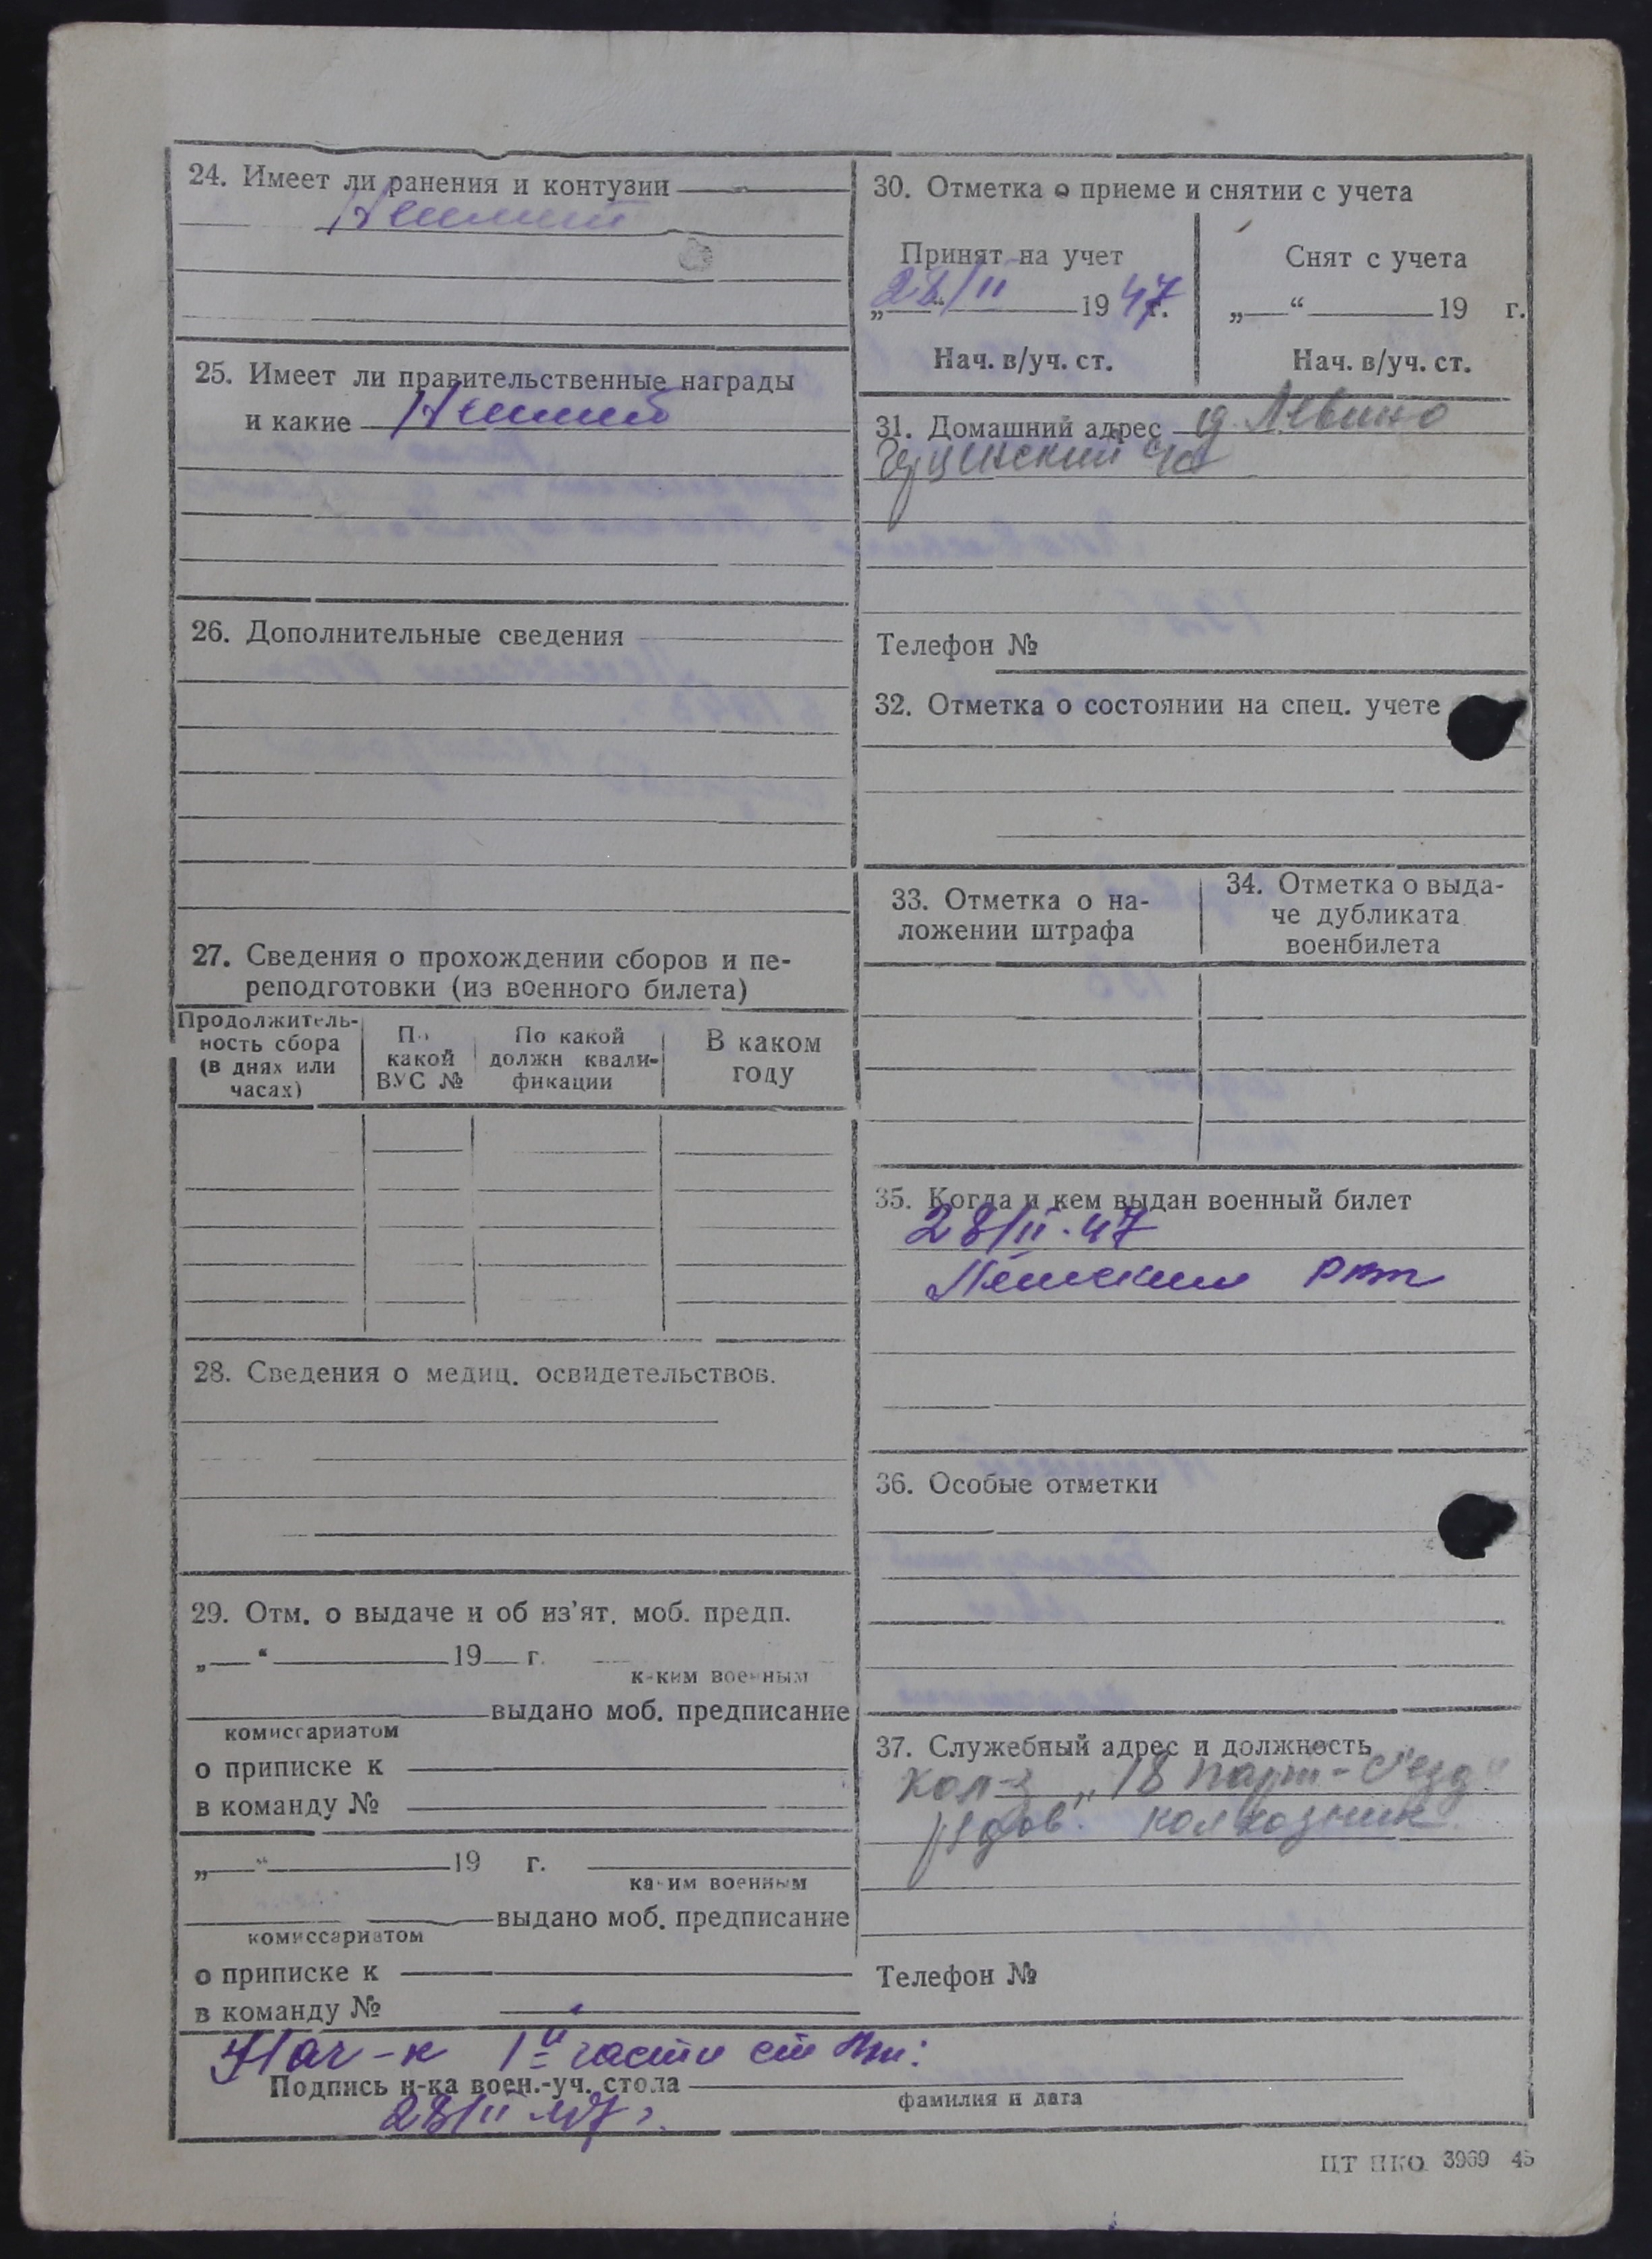 24. Имеет ли ранения и контузии
Не имеет
25. Имеет ли правительственные награды
и какие Не имеет
26. Дополнительные сведения
27. Сведения о прохождении сборов и пе-
реподготовки (из военного билета)
Продолжитель-
ность сбора
(в днях или
часах)
По
какой
ВУС №
По какой
должн квали-
фикации
В каком
году
28. Сведения о медиц. освидетельствов.
29. Отм. о выдаче и об из'ят. моб. предп.
„ “ 19 г.
каким военным
выдано моб. предписание
комиссариатом
о приписке к
в команду №
„ “ 19 г.
каким военным
выдано моб. предписание
комиссариатом
о приписке к
в команду №
30. Отметка о приеме и снятии с учета
Принят на учет
28/II 1947г.
Нач. в/уч. ст.
Снят с учета
„ “ 19 г.
Нач. в/уч. ст.
31. Домашний адрес д. Левино
с/с
Телефон №
32. Отметка о состоянии на спец. учете
33. Отметка о на-
ложении штрафа
34. Отметка о выда-
че дубликата
военбилета
35. Когда и кем выдан военный билет
28/II-47
РВК
36. Особые отметки
37. Служебный адрес и должность
Кол-з „18 парт-с'езд“
рядов. колхозник
Телефон №
Нач-к 1й части
Подпись н-ка воен.-уч. стола
фамилия и дата
28/II 47г.
ЦТ НКО 3969 45